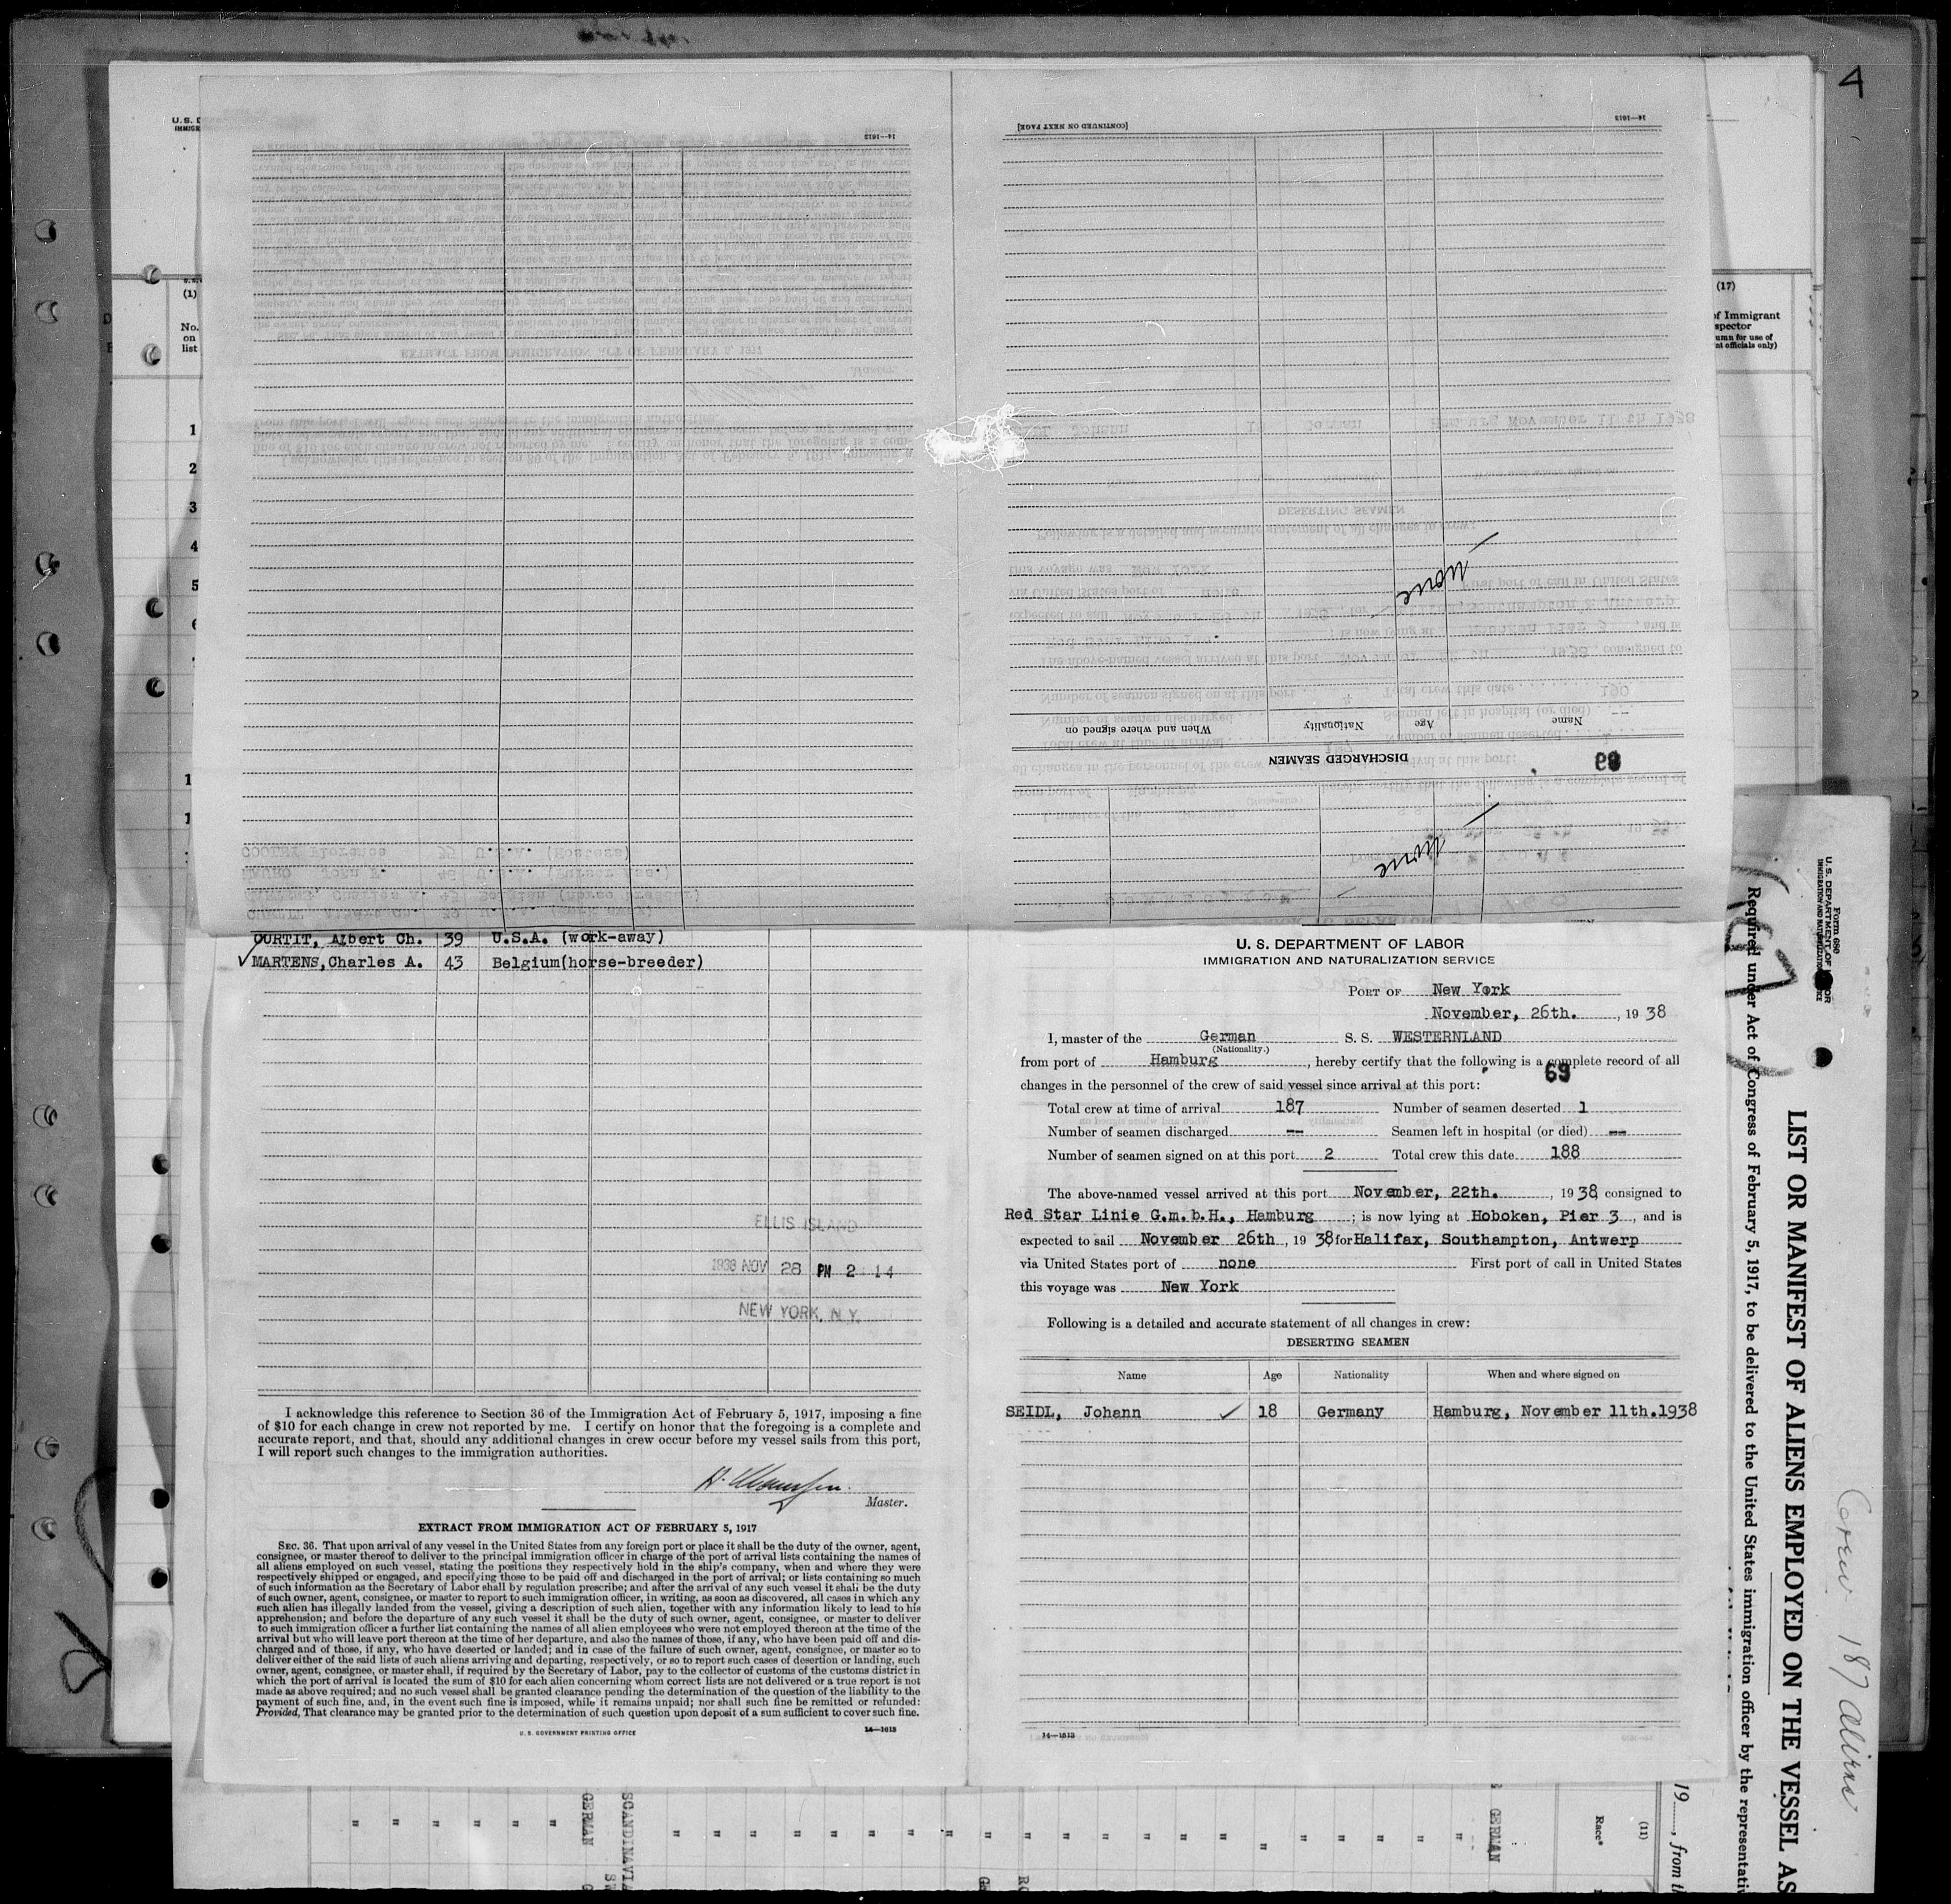 U. S. DEPARTMENT OF LABOR
IMMIGRATION AND NATURALIZATION SERVICE
PORT OF New York
November, 26th. , 1938
I, master of the German S. S. WESTERNLAND
(Nationality.)
from port of Hamburg , hereby certify that the following is a complete record of all
69
changes in the personnel of the crew of said vessel since arrival at this port:
Total crew at time of arrival 187 Number of seamen deserted 1
Number of seamen discharged -- Seamen left in hospital (or died) --
Number of seamen signed on at this port 2 Total crew this date 188
The above-named vessel arrived at this port November, 22th. , 1938, consigned to
Red Star Linie G.m.b.H., Hamburg ; is now lying at Hoboken, Pier 3 , and is
expected to sail November 26th , 1938 for Halifax, Southampton, Antwerp
via United States port of none First port of call in United States
this voyage was New York
Following is a detailed and accurate statement of all changes in crew:
DESERTING SEAMEN
Name Age Nationality When and where signed on
SEIDL, Johann 18 Germany Hamburg, November 11th.1938
14—1613
CURTIT, Albert Ch. 39 U.S.A. (work-away)
MARTENS, Charles A. 43 Belgium(horse-breeder)
ELLIS ISLAND
1938 NOV 28 PM 2 14
NEW YORK, N.Y.
I acknowledge this reference to Section 36 of the Immigration Act of February 5, 1917, imposing a fine
of $10 for each change in crew not reported by me. I certify on honor that the foregoing is a complete and
accurate report, and that, should any additional changes in crew occur before my vessel sails from this port,
I will report such changes to the immigration authorities.
Master.
EXTRACT FROM IMMIGRATION ACT OF FEBRUARY 5, 1917
SEC. 36. That upon arrival of any vessel in the United States from any foreign port or place it shall be the duty of the owner, agent,
consignee, or master thereof to deliver to the principal immigration officer in charge of the port of arrival lists containing the names of
all aliens employed on such vessel, stating the positions they respectively hold in the ship's company, when and where they were
respectively shipped or engaged, and specifying those to be paid off and discharged in the port of arrival; or lists containing so much
of such information as the Secretary of Labor shall by regulation prescribe; and after the arrival of any such vessel it shall be the duty
of such owner, agent, consignee, or master to report to such immigration officer, in writing, as soon as discovered, all cases in which any
such alien has illegally landed from the vessel, giving a description of such alien, together with any information likely to lead to his
apprehension; and before the departure of any such vessel it shall be the duty of such owner, agent, consignee, or master to deliver
to such immigration officer a further list containing the names of all alien employees who were not employed thereon at the time of the
arrival but who will leave port thereon at the time of her departure, and also the names of those, if any, who have been paid off and dis-
charged and of those, if any, who have deserted or landed; and in case of the failure of such owner, agent, consignee, or master so to
deliver either of the said lists of such aliens arriving and departing, respectively, or so to report such cases of desertion or landing, such
owner, agent, consignee, or master shall, if required by the Secretary of Labor, pay to the collector of customs of the customs district in
which the port of arrival is located the sum of $10 for each alien concerning whom correct lists are not delivered or a true report is not
made as above required; and no such vessel shall be granted clearance pending the determination of the question of the liability to the
payment of such fine, and, in the event such fine is imposed, while it remains unpaid; nor shall such fine be remitted or refunded:
Provided, That clearance may be granted prior to the determination of such question upon deposit of a sum sufficient to cover such fine.
U. S. GOVERNMENT PRINTING OFFICE 14—1613
[CONTINUED ON NEXT PAGE] 14—1613
DISCHARGED SEAMEN
Name Age Nationality When and where signed on
none
none
14—1613
(1)
No.
on
list
1
2
3
4
5
(17)
of Immigrant
spector
umn for use of
nt officials only)
Form 680
U. S. DEPARTMENT OF LABOR
LIST OR MANIFEST OF ALIENS EMPLOYED ON THE VESSEL AS
Required under Act of Congress of February 5, 1917, to be delivered to the United States immigration officer by the representativ
Crew 187 aliens
19 , from th
(11)
Race*
GERMAN
SCANDINAVIA
GERMAN